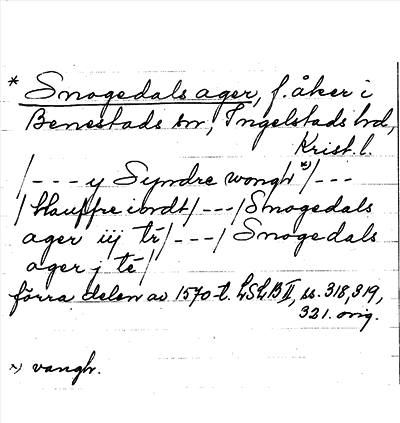 * Snogedals ager, f. åker i
Benestads sn, Ingelstads hd,
Krist. l.
/ - - - y Syndre wongh *) / - - -
/ Hauffre iordt / - - - / Snogedals
ager iij tr / - - - / Snogedals
ager j te /
förra delen av 1570-t. LSLB II, ss. 318, 319,
321. orig.
*) vangh.